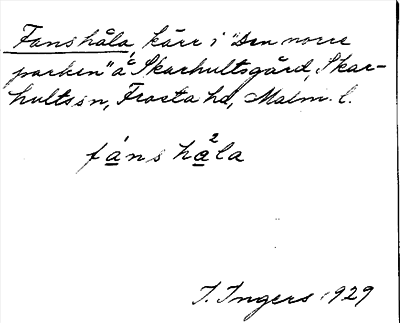 Fanshåla, kärr i "Den norre
parken" å Skarhultsgård, Skar-
hults sn, Frosta hd, Malm. l.
fánshà²la
I. Ingers 1929